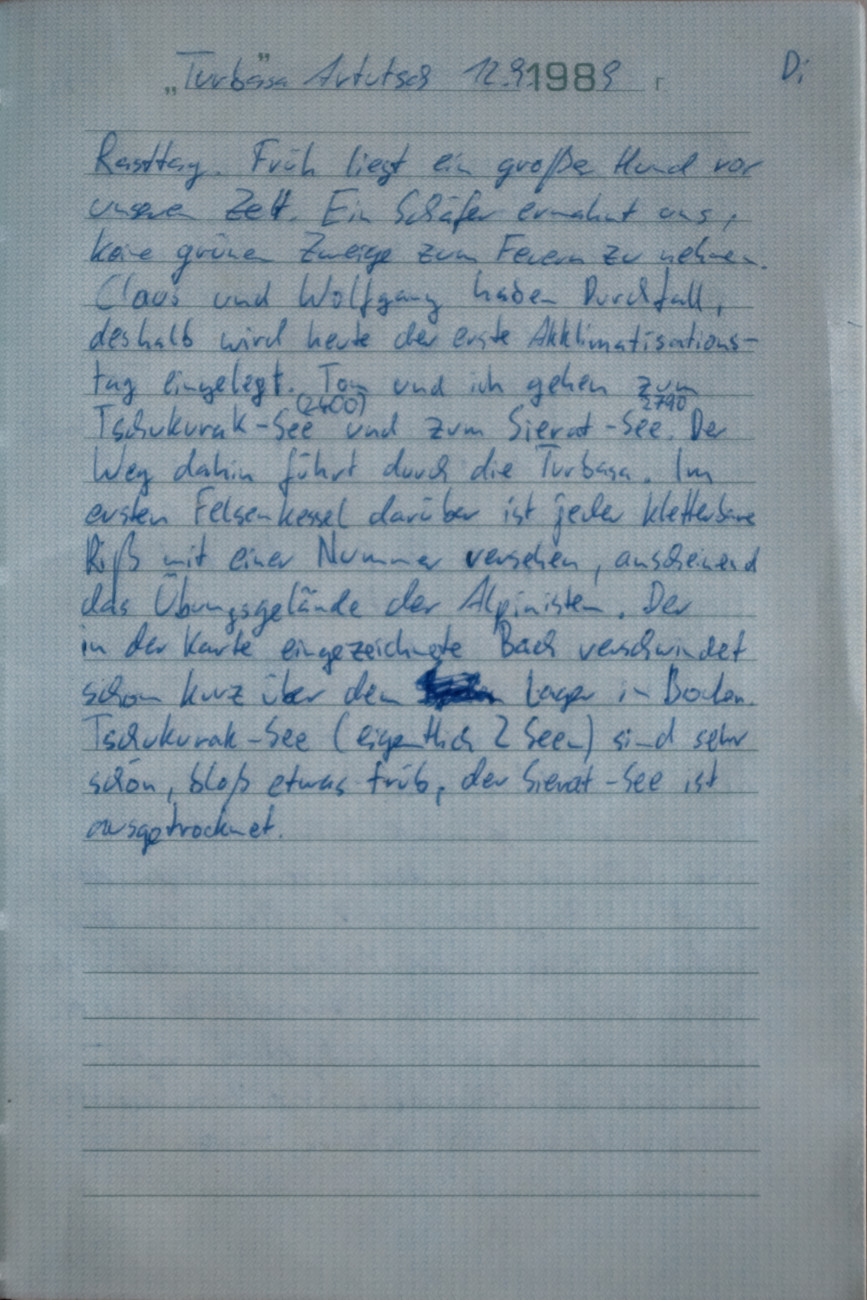 „Turbasa" Artutsch 12.9.1989 г Di
Rasttag. Früh liegt ein große Hund vor
unseren Zelt. Ein Schäfer ermahnt uns,
keine grünen Zweige zum Feuern zu nehmen.
Claus und Wolfgang haben Durchfall,
deshalb wird heute der erste Akklimatisations-
tag eingelegt. Tom und ich gehen zum
(2400) 2790
Tschukurak-See und zum Sierat-See. Der
Weg dahin führt durch die Turbasa. Im
ersten Felsenkessel darüber ist jeder kletterbare
Riß mit einer Nummer versehen, anscheinend
das Übungsgelände der Alpinisten. Der
in der Karte eingezeichnete Bach verschwindet
schon kurz über dem Lager in Boden.
Tschukurak-See (eigentlich 2 Seen) sind sehr
schön, bloß etwas trüb, der Sierat-See ist
ausgetrocknet.